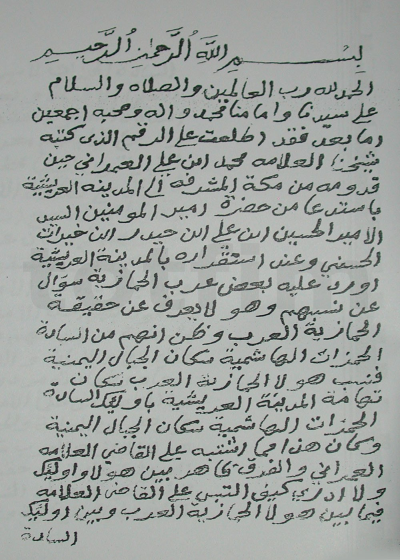 بسم الله الرحمن الرحيم
الحمد لله رب العالمين والصلاه والسلام
على سيدنا وامامنا محمد واله وصحبه اجمعين
اما بعد فقد اطلعت على الرقم الذي كتبه
شيخنا العلامه محمد ابن علي العمراني حين
قدومه من مكة المشرفه الى المدينه العريشية
باستدعا من حضرة امير المومنين السيد
الامير الحسين ابن علي ابن حيدر ابن خيرات
الحسني وعند استقراره بالمدينة العريشية
اورد عليه بعض عرب الجمازية سوال
عن نسبهم وهو لا يعرف عن حقيقة
الجمازية العرب وظن انهم من السادة
الحمزات الهاشمية سكان الجبال اليمنية
فنسب هولا الجمازية العرب سكان
تهامة المدينة العريشية باوليك السادة
الحمزات الهاشمية سكان الجبال اليمنية
وكان هذا مما اشتبه على القاضي العلامه
العمراني والفرق ظاهر بين هولا واوليك
ولا ادري كيف التبس على القاضي العلامه
فيما بين هولا الجمازية العرب وبين اوليك
السادة